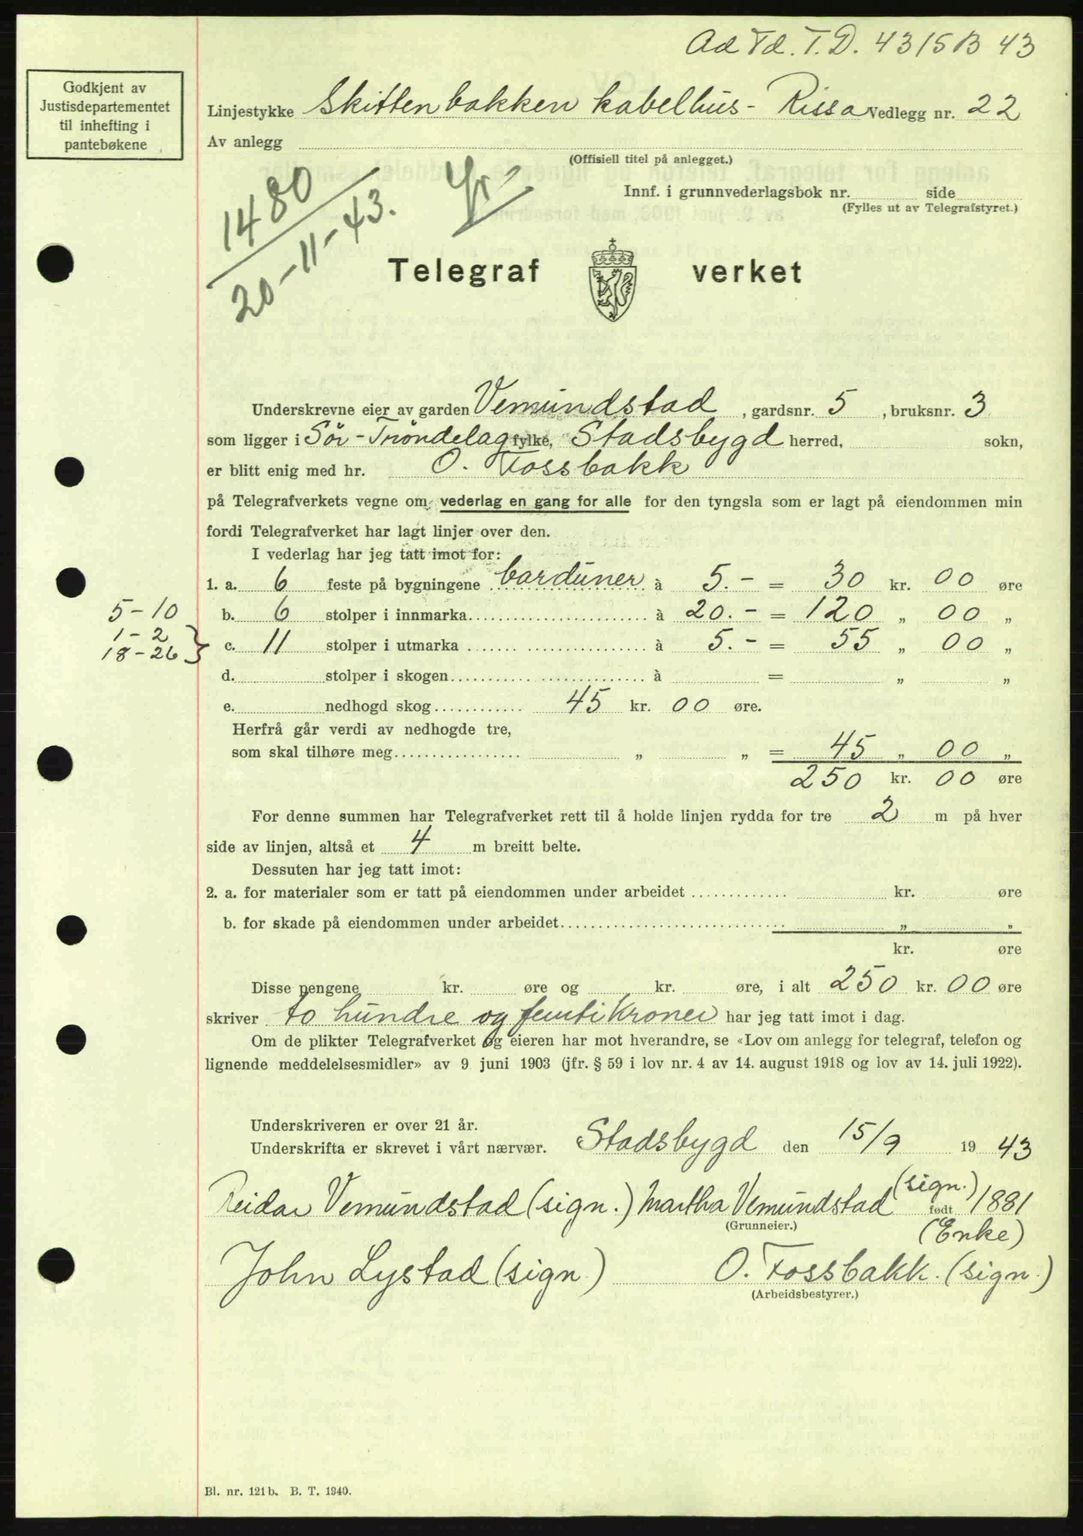 Ad Td. T.D. 4315 B 43
Godkjent av
Justisdepartementet
til inhefting i
pantebøkene
Linjestykke Skittenbakken kabelhus - Rissa Vedlegg nr. 22
Av anlegg
(Offisiell titel på anlegget.)
Innf. i grunnvederlagsbok nr. side
(Fylles ut av Telegrafstyret.)
1480
20-11-43.
Telegraf verket
Underskrevne eier av garden Vemundstad, gardsnr. 5, bruksnr. 3
som ligger i Sör-Tröndelag fylke, Stadsbygd herred, sokn,
er blitt enig med hr. O. Fossbakk
på Telegrafverkets vegne om vederlag en gang for alle for den tyngsla som er lagt på eiendommen min
fordi Telegrafverket har lagt linjer over den.
I vederlag har jeg tatt imot for:
1. a. 6 feste på bygningene barduner à 5.- = 30 kr. 00 øre
5-10 b. 6 stolper i innmarka à 20.- = 120 „ 00 „
1-2
18-26 } c. 11 stolper i utmarka à 5.- = 55 „ 00 „
d. stolper i skogen à = „ „
e. nedhogd skog 45 kr. 00 øre.
Herfrå går verdi av nedhogde tre,
som skal tilhøre meg „ „ = 45 „ 00 „
250 kr. 00 øre
For denne summen har Telegrafverket rett til å holde linjen rydda for tre 2 m på hver
side av linjen, altså et 4 m breitt belte.
Dessuten har jeg tatt imot:
2. a. for materialer som er tatt på eiendommen under arbeidet kr. øre
b. for skade på eiendommen under arbeidet „ „
kr. øre
Disse pengene kr. øre og kr. øre, i alt 250 kr. 00 øre
skriver to hundre og femti kroner har jeg tatt imot i dag.
Om de plikter Telegrafverket og eieren har mot hverandre, se «Lov om anlegg for telegraf, telefon og
lignende meddelelsesmidler» av 9 juni 1903 (jfr. § 59 i lov nr. 4 av 14. august 1918 og lov av 14. juli 1922).
Underskriveren er over 21 år.
Underskrifta er skrevet i vårt nærvær. Stadsbygd den 15/9 19 43
Reidar Vemundstad (sign.) Martha Vemundstad (sign.) født 1881
(Grunneier.) (Enke)
John Lystad (sign) O. Fossbakk. (sign.)
(Arbeidsbestyrer.)
Bl. nr. 121 b. B. T. 1940.